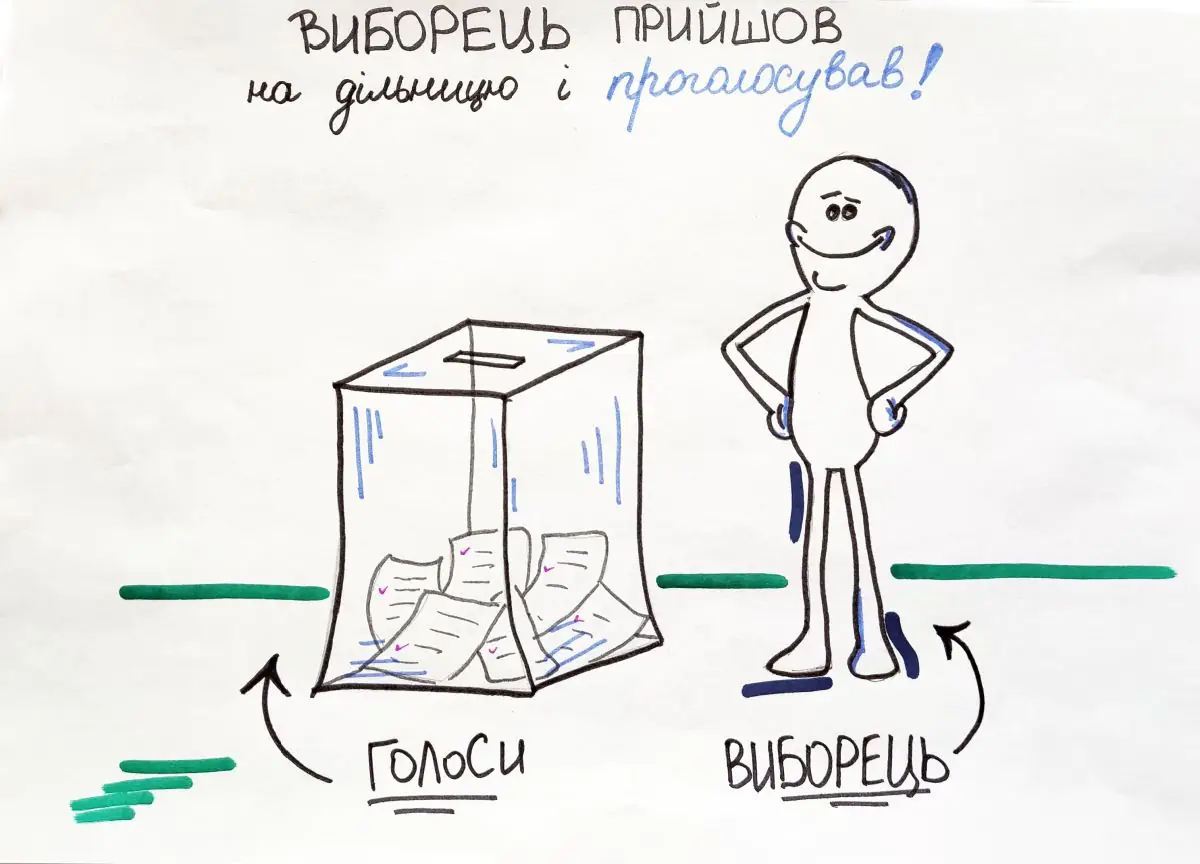 ВИБОРЕЦЬ ПРИЙШОВ
на дільницю і проголосував!
ГОЛОСИ
ВИБОРЕЦЬ